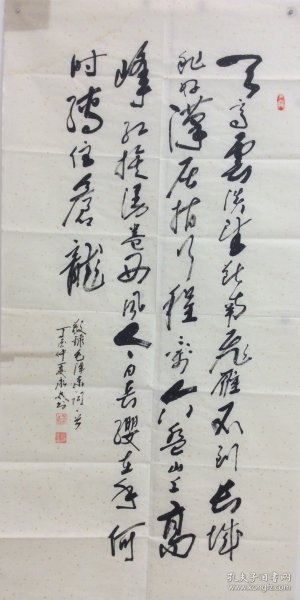 天高雲淡望断南飛雁不到長城
非好漢屈指行程二万六盤山上高
峰红旗漫卷西風今日長纓在手何
时缚住蒼龍
毛泽东词一首
丁亥仲夏
孔夫子旧书网